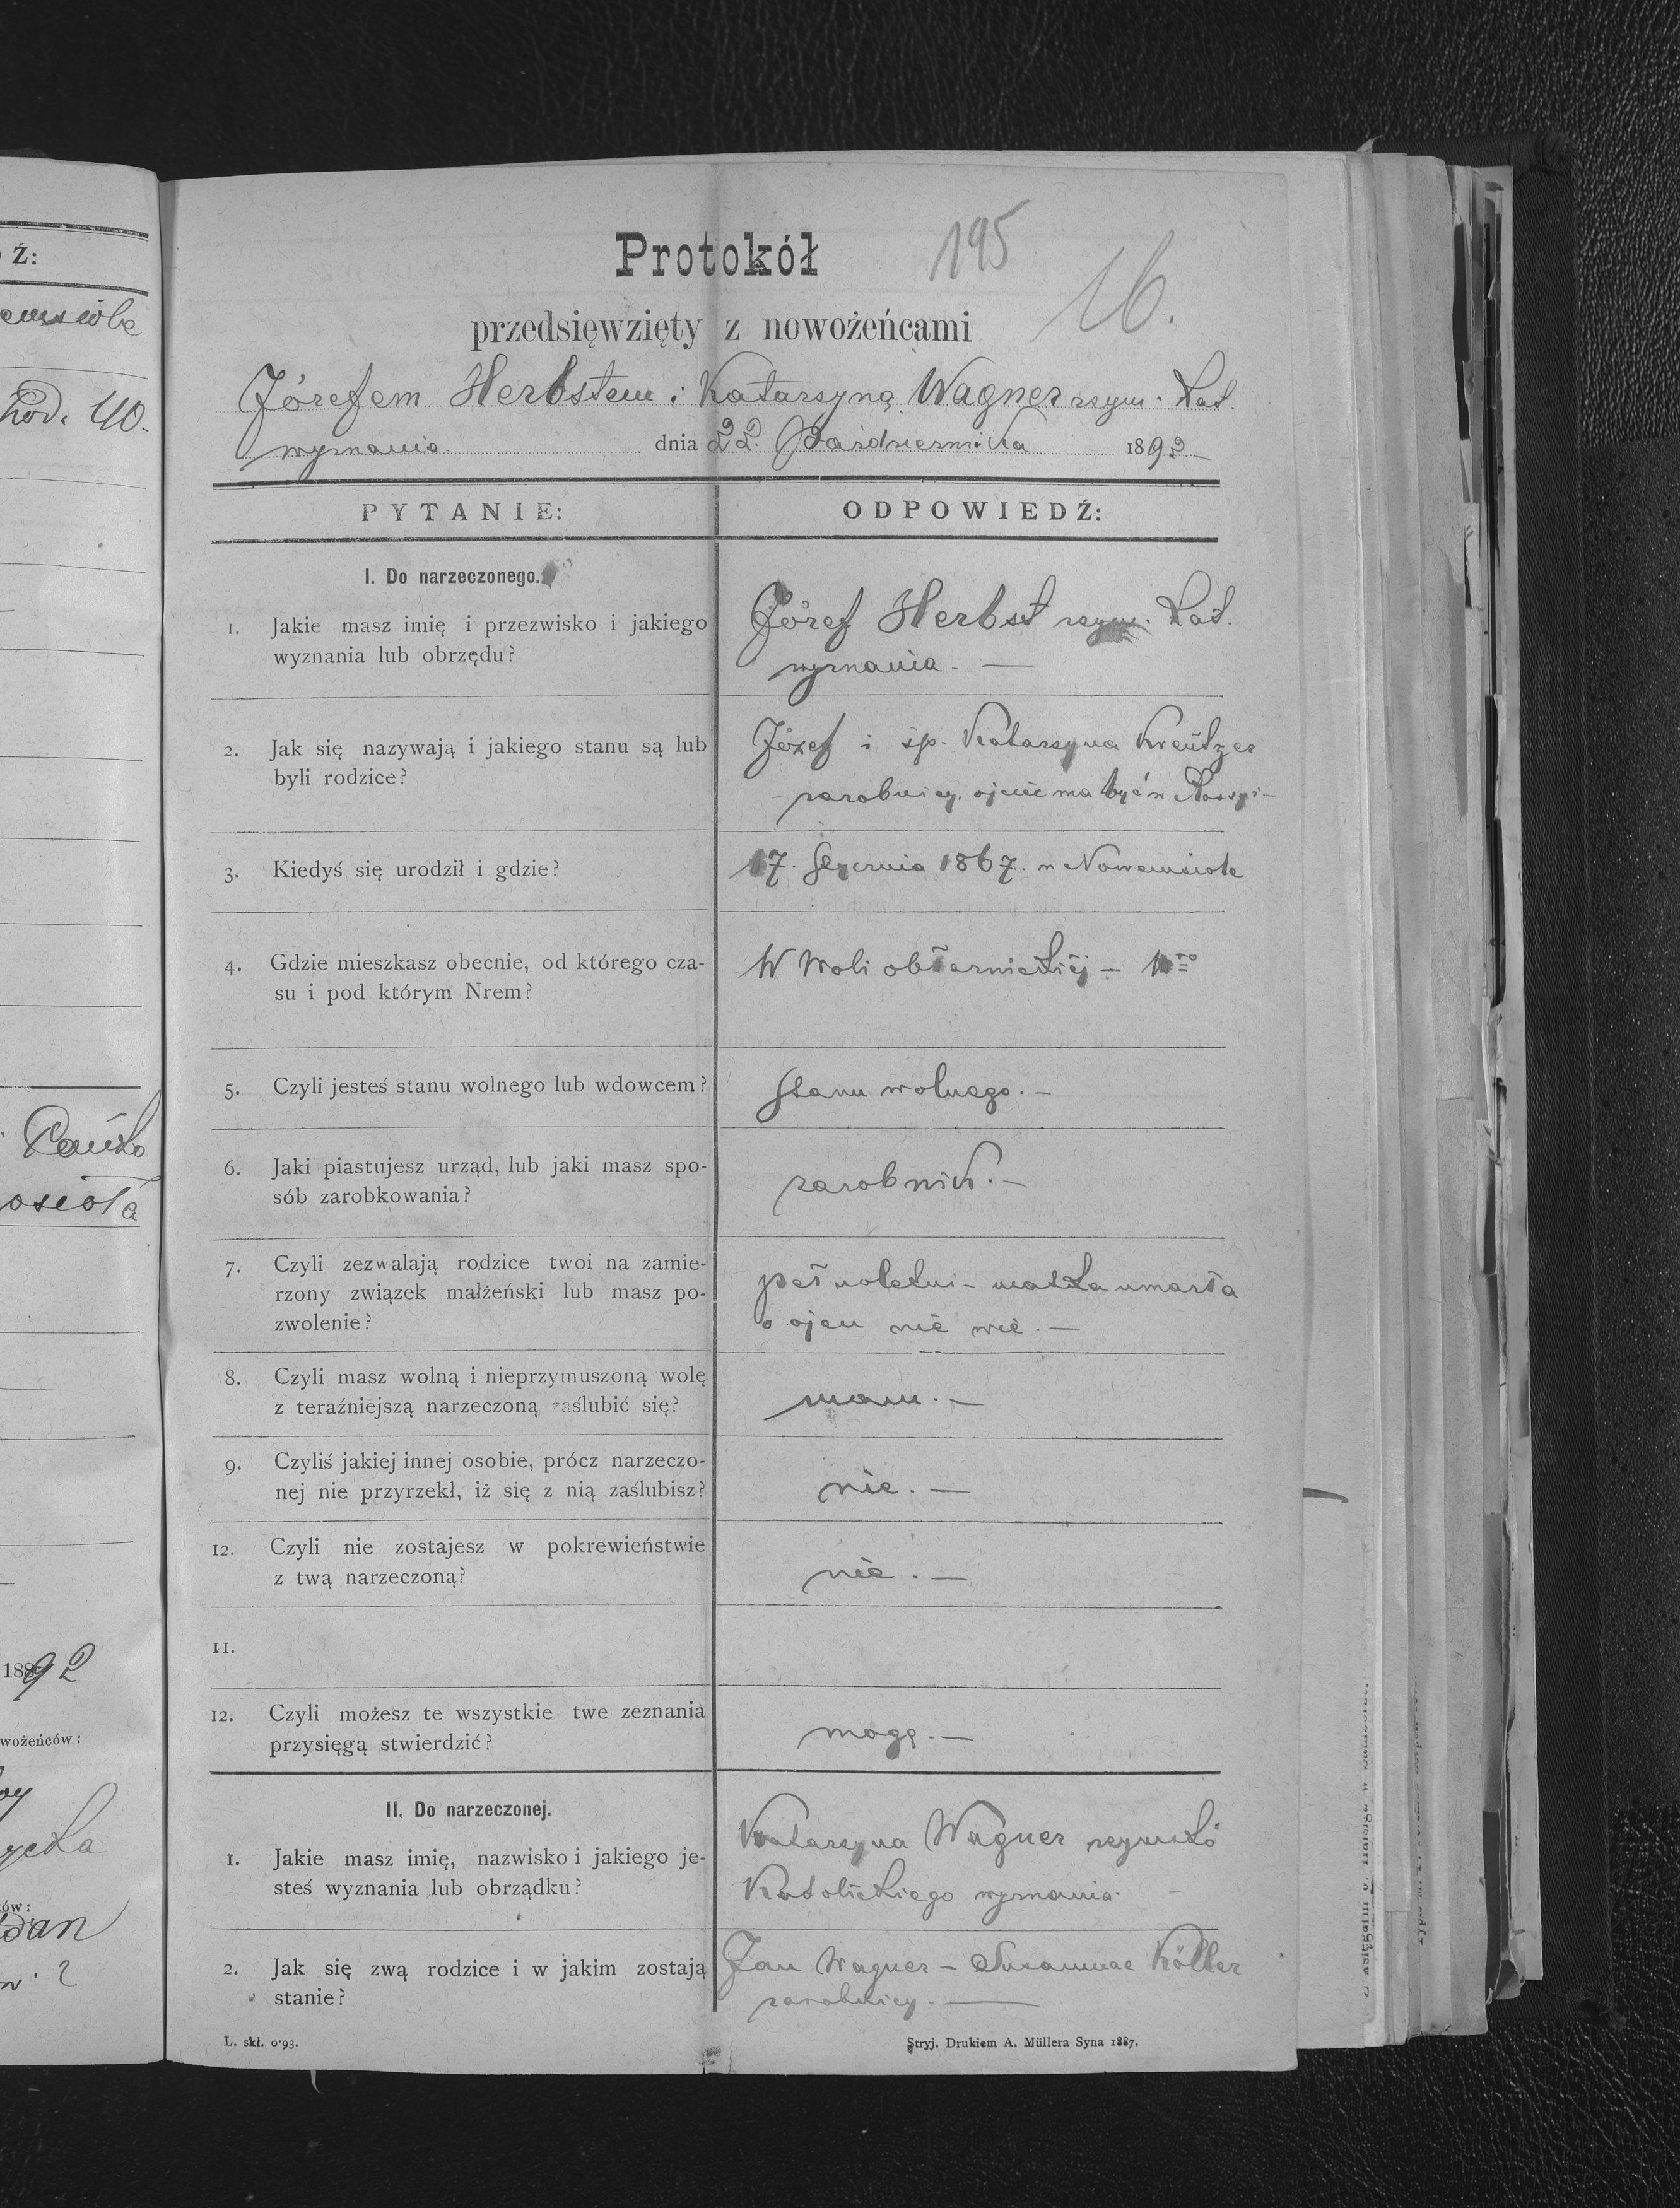 Ź:
Kod. 40.
Pańko
osioła
1892
wożeńców:
ycka
ów:
dan
Protokół
195
16.
przedsięwzięty z nowożeńcami
Józefem Herbstem i Katarzyną Wagner rzym. kat.
wyznania dnia 22. Października 1892
PYTANIE:
ODPOWIEDŹ:
I. Do narzeczonego.
1. Jakie masz imię i przezwisko i jakiego
wyznania lub obrzędu?
Józef Herbst rzym. kat.
wyznania. —
2. Jak się nazywają i jakiego stanu są lub
byli rodzice?
Józef i śp. Katarzyna Kreutzer
zarobnicy, ojciec ma być w Rossyi —
3. Kiedyś się urodził i gdzie?
17. Stycznia 1867. w Nowemsiole
4. Gdzie mieszkasz obecnie, od którego cza-
su i pod którym Nrem?
W Woli obłaznickiej —
5. Czyli jesteś stanu wolnego lub wdowcem?
stanu wolnego. —
6. Jaki piastujesz urząd, lub jaki masz spo-
sób zarobkowania?
zarobnik. —
7. Czyli zezwalają rodzice twoi na zamie-
rzony związek małżeński lub masz po-
zwolenie?
pełnoletni — matka umarła
o ojcu nie wie. —
8. Czyli masz wolną i nieprzymuszoną wolę
z teraźniejszą narzeczoną zaślubić się?
mam. —
9. Czyliś jakiej innej osobie, prócz narzeczo-
nej nie przyrzekł, iż się z nią zaślubisz?
nie. —
12. Czyli nie zostajesz w pokrewieństwie
z twą narzeczoną?
nie. —
11.
12. Czyli możesz te wszystkie twe zeznania
przysięgą stwierdzić?
mogę. —
II. Do narzeczonej.
1. Jakie masz imię, nazwisko i jakiego je-
steś wyznania lub obrządku?
Katarzyna Wagner rzymsko
Katolickiego wyznania.
2. Jak się zwą rodzice i w jakim zostają
stanie?
Jan Wagner — Susannae Köller
zarobnicy. —
L. skł. 0·93.
Stryj. Drukiem A. Müllera Syna 1887.